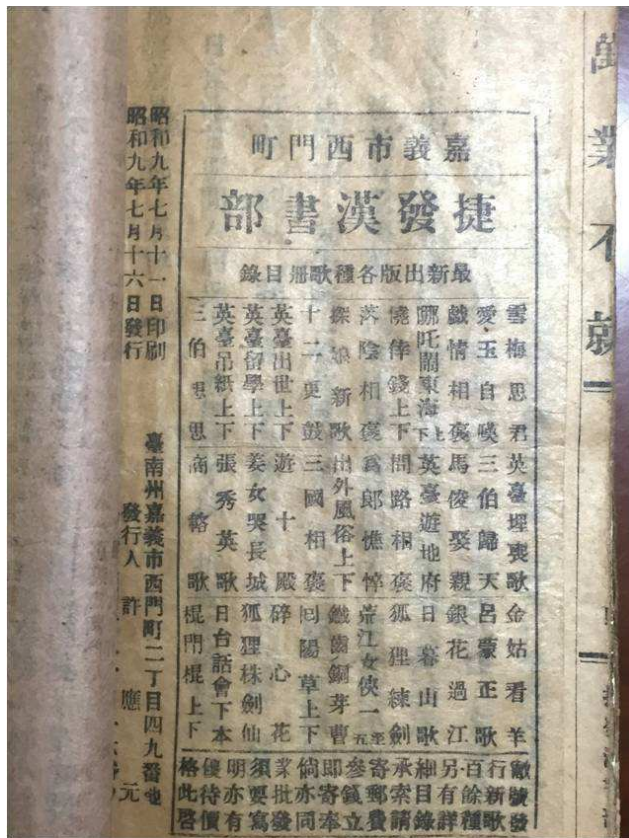 萬業不就
嘉義市西門町
捷發漢書部
最新出版各種歌冊目錄
雪梅思君 英臺埋喪歌 金姑看羊
愛玉自嘆 三伯歸天 呂蒙正歌
戲情相褒 馬俊娶親 銀花過江
哪吒鬧東海上下 英臺遊地府 日暮山歌
僥倖錢上下 問路相褒 狐狸練劍
落陰相褒 為郎憔悴 荒江女俠一至五
探娘新歌 出外風俗上下 鐵齒銅芽曹
十二更鼓 三國相褒 回陽草上下
英臺出世上下 遊十殿 碎心花
英臺留學上下 姜女哭長城 狐狸株劍仙
英臺吊紙上下 張秀英歌 日台話會下本
三伯思思 商輅歌 棍鬥棍上下
敝號發
行新歌
百餘種
另有詳
細目錄
承索請
寄郵費
參錢立
即寄奉
倘亦同
業批發
須要寫
明亦有
優待價
格此啓
昭和九年七月十一日印刷
昭和九年七月十六日發行
臺南州嘉義市西門町二丁目四九番地
發行人 許應元